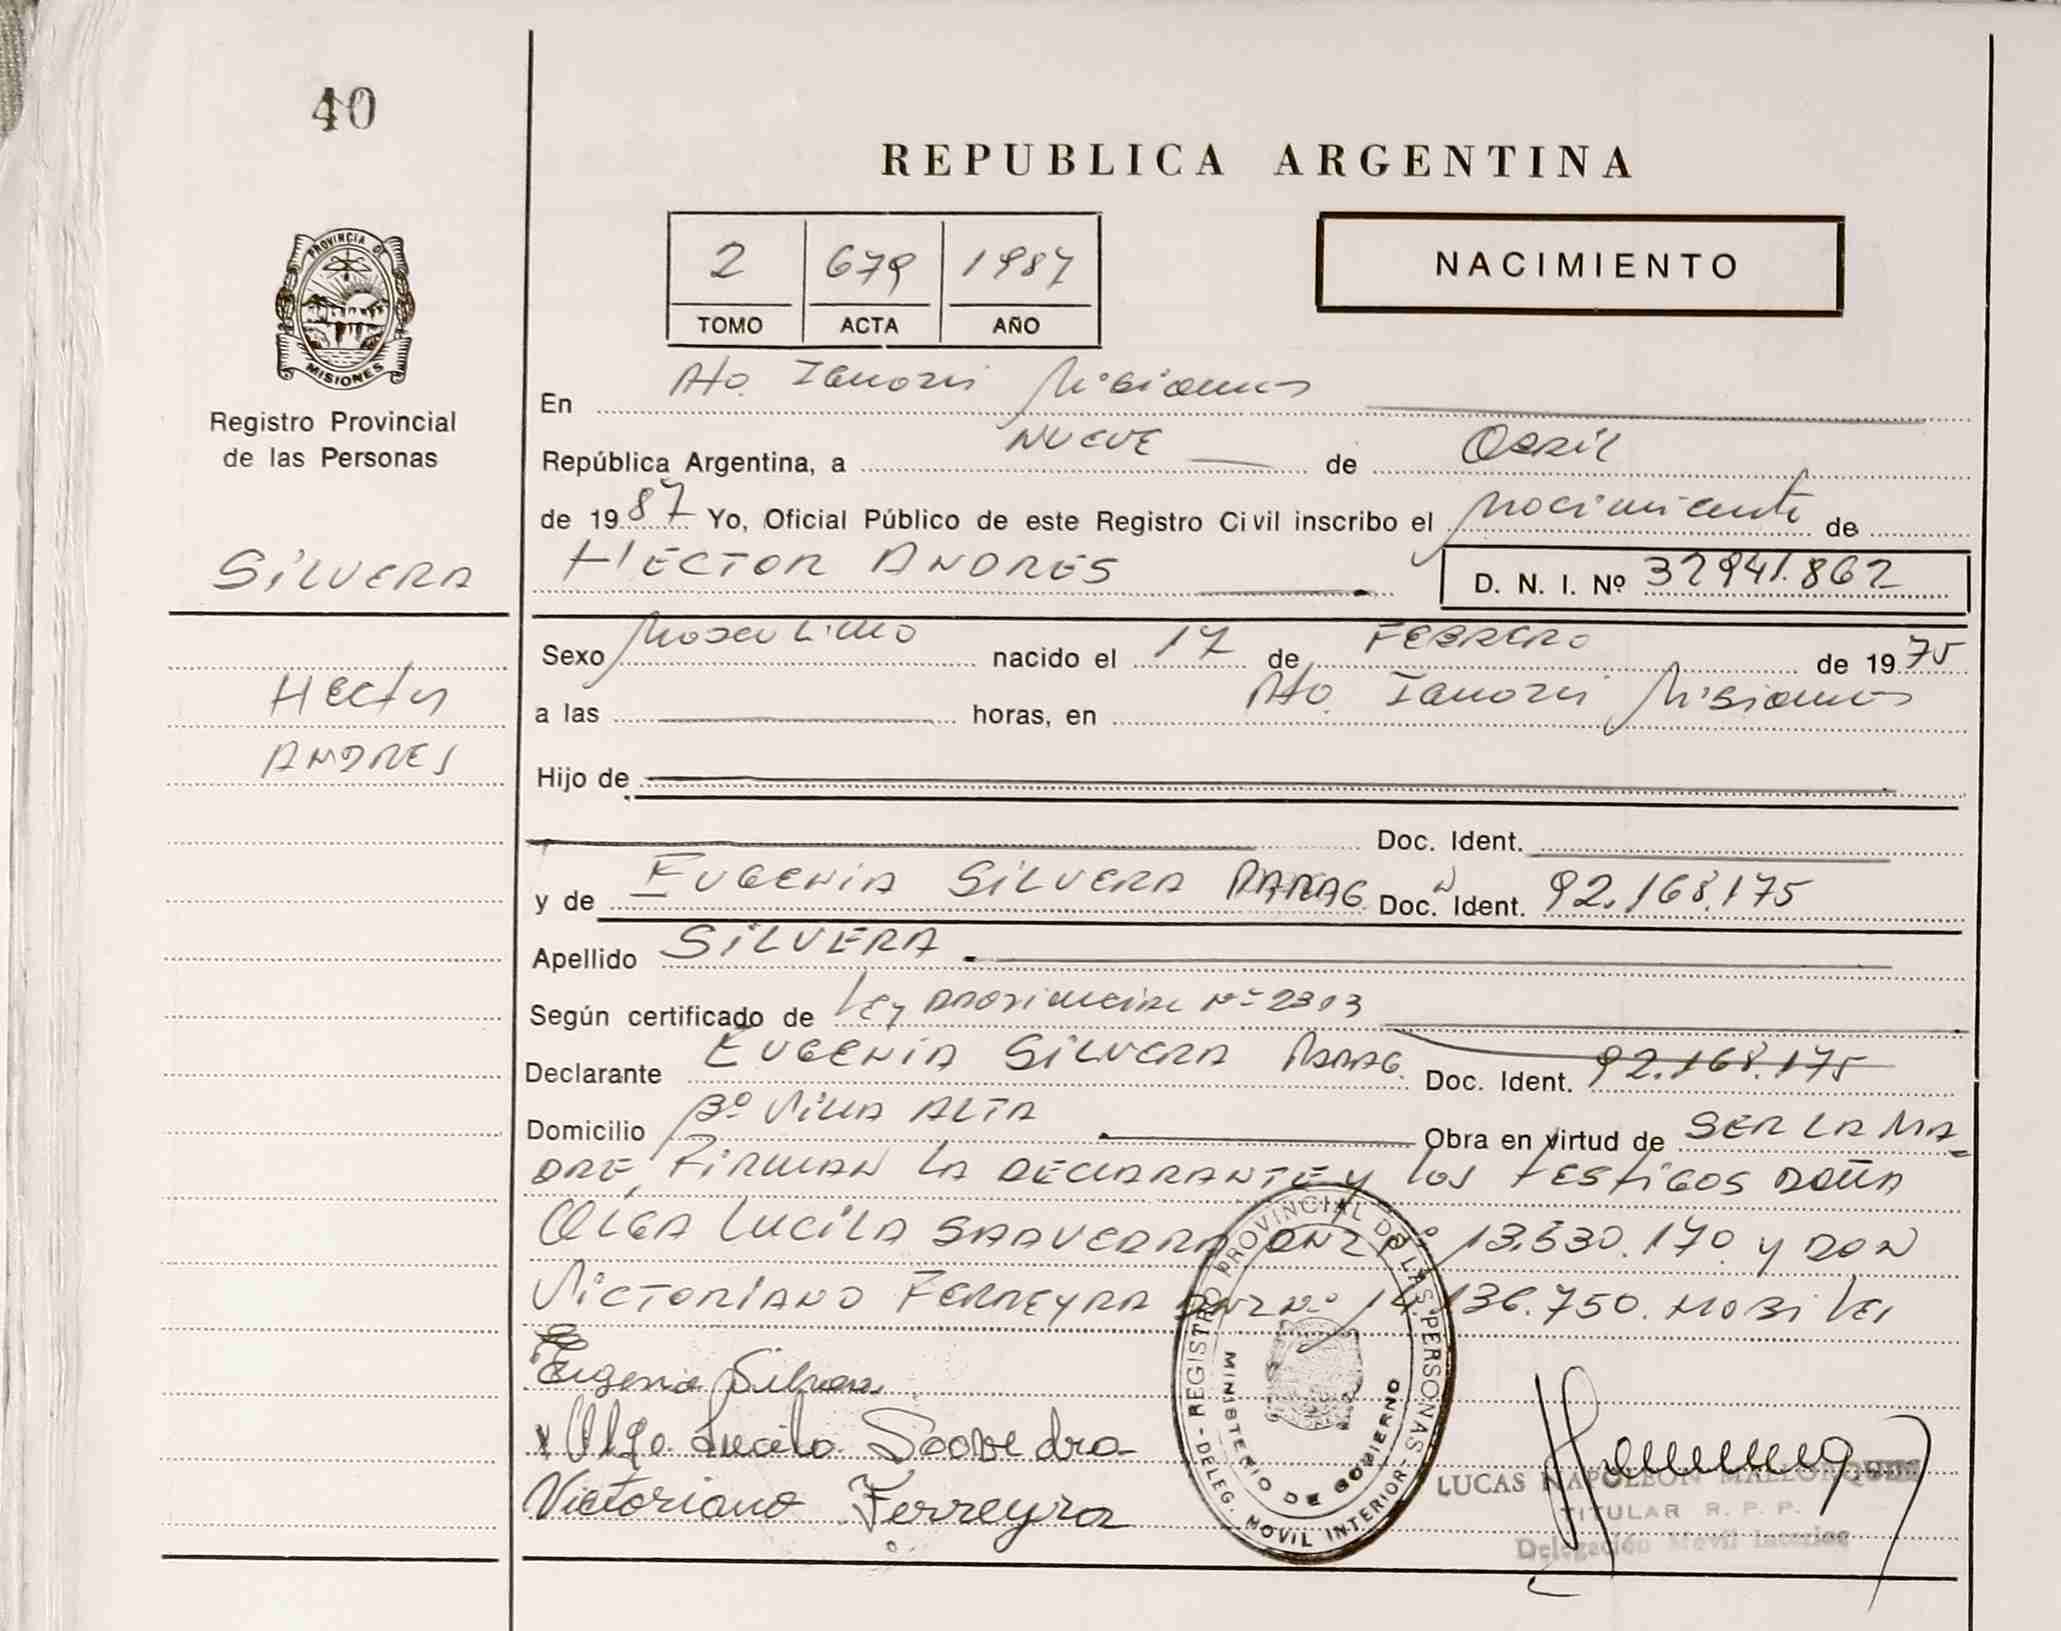 40
REPUBLICA ARGENTINA
2 679 1987
TOMO ACTA AÑO
NACIMIENTO
PROVINCIA DE
MISIONES
Registro Provincial
de las Personas
SILVERA
Hector
ANDRES
En Pto. Misiones
República Argentina, a NUEVE de Abril
de 1987 Yo, Oficial Público de este Registro Civil inscribo el nacimiento de
HECTOR ANDRES D. N. I. Nº 32941.862
Sexo Masculino nacido el 17 de FEBRERO de 1975
a las horas, en Pto. Misiones
Hijo de
Doc. Ident.
y de EUGENIA SILVERA PARAG. Doc. Ident. 92.168.175
Apellido SILVERA
Según certificado de Ley provincial Nº 2303
Declarante EUGENIA SILVERA PARAG. Doc. Ident. 92.168.175
Domicilio Bº VILLA ALTA Obra en virtud de SER LA MA-
DRE, FIRMAN LA DECLARANTE y los testigos DOÑA
OLGA LUCILA SAAVEDRA DNI Nº 13.530.170 y DON
VICTORIANO FERREYRA DNI Nº 136.750.
Eugenia Silvera
Olga Lucila Saavedra
Victoriano Ferreyra
REGISTRO PROVINCIAL DE LAS PERSONAS - DELEG. MOVIL INTERIOR -
MINISTERIO DE GOBIERNO
LUCAS NAPOLEON
TITULAR R. P. P.
Delegación Movil Interior